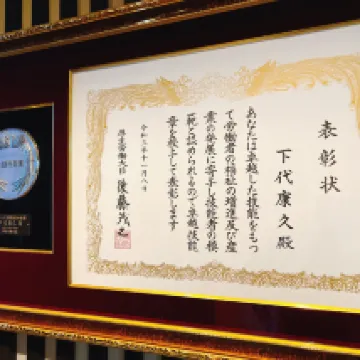 表彰状
下代康久殿
あなたは卓越した技能をもつ
て労働者の福祉の増進及び産
業の発展に寄与し技能者の模
範と認められるので卓越技能
章を授与して表彰します
令和三年十一月八日
厚生労働大臣 後藤茂之